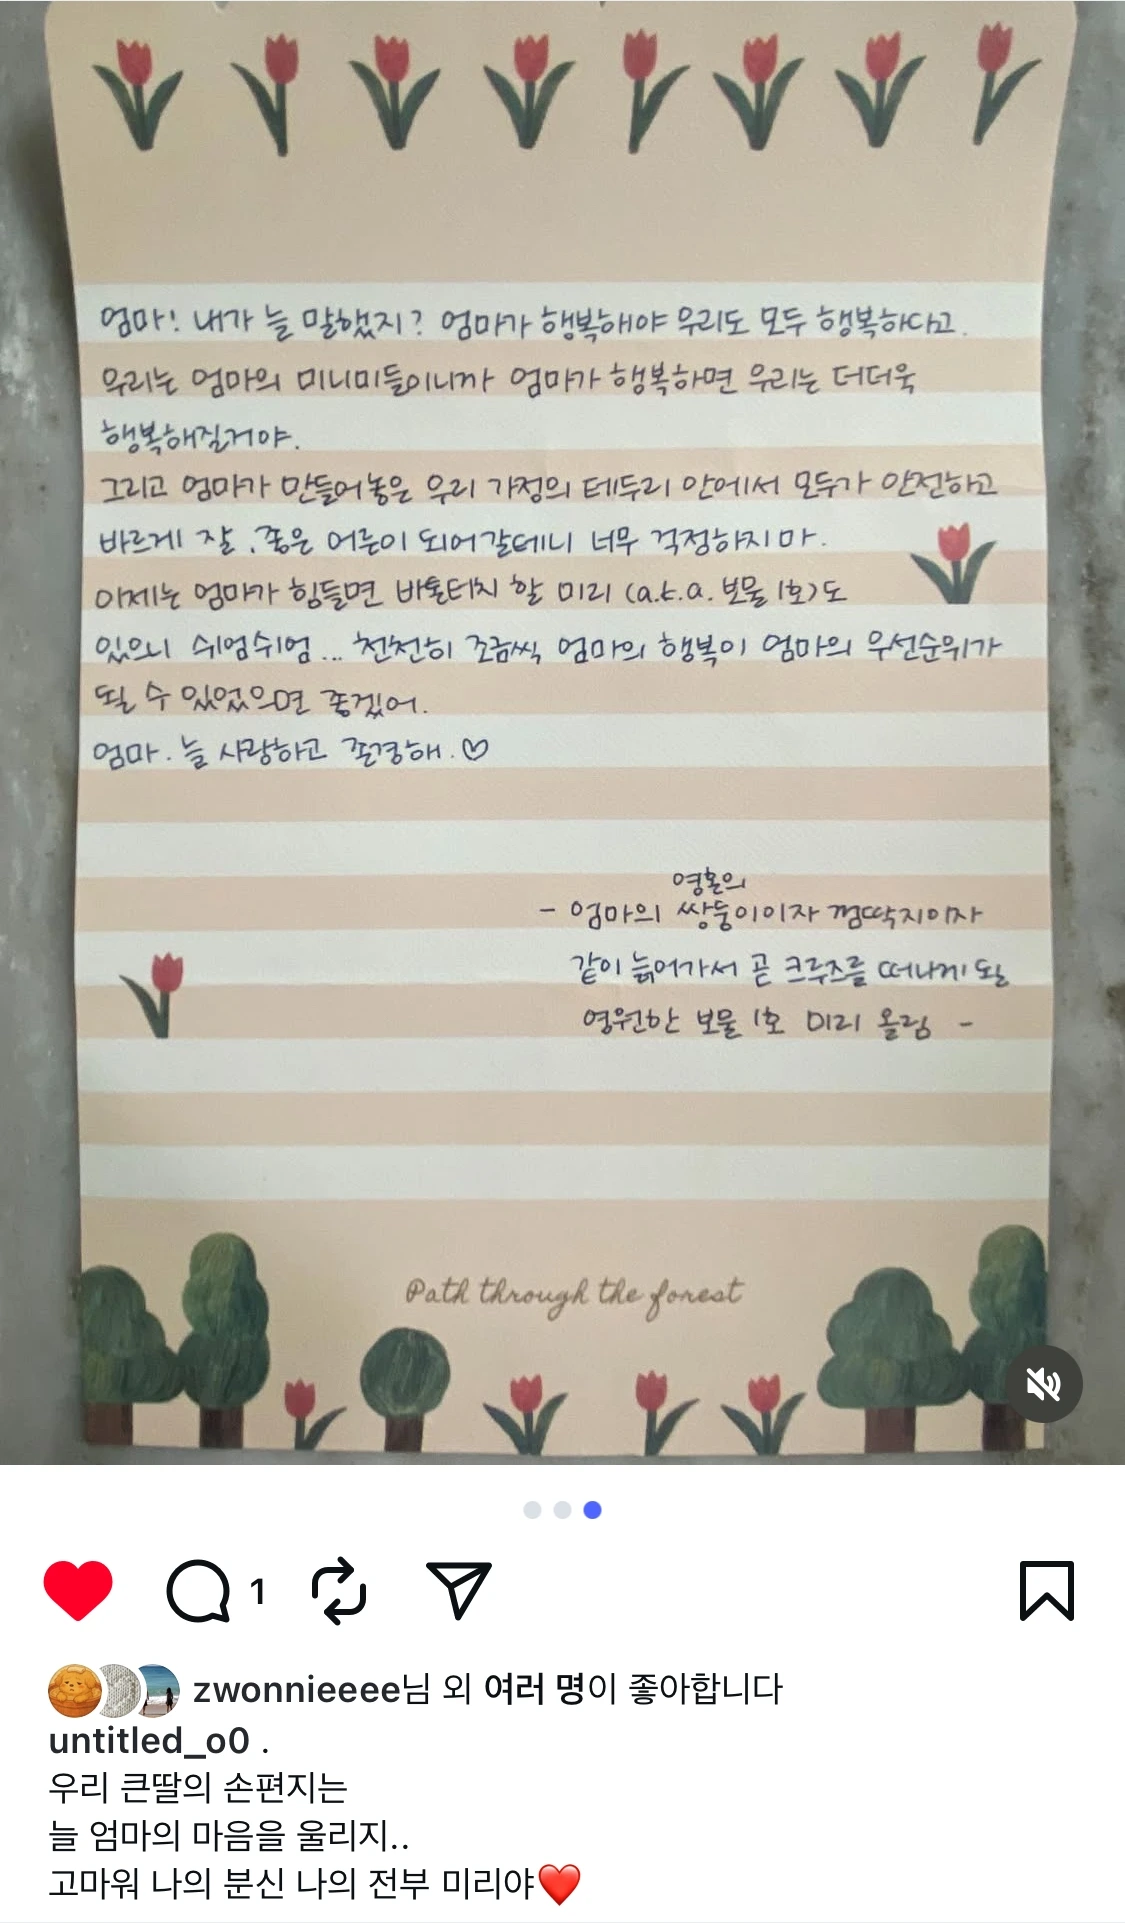 엄마! 내가 늘 말했지? 엄마가 행복해야 우리도 모두 행복하다고.
우리는 엄마의 미니미들이니까 엄마가 행복하면 우리는 더더욱
행복해질거야.
그리고 엄마가 만들어놓은 우리 가정의 테두리 안에서 모두가 안전하고
바르게 잘, 좋은 어른이 되어갈테니 너무 걱정하지마.
이제는 엄마가 힘들면 바톤터치 할 미리 (a.k.a. 보물 1호)도
있으니 쉬엄쉬엄... 천천히 조금씩 엄마의 행복이 엄마의 우선순위가
될 수 있었으면 좋겠어.
엄마. 늘 사랑하고 존경해.♡
영혼의
- 엄마의 쌍둥이이자 껌딱지이자
같이 늙어가서 곧 크루즈를 떠나게 될
영원한 보물 1호 미리 올림 -
Path through the forest
1
zwonnieeee님 외 여러 명이 좋아합니다
untitled_o0 .
우리 큰딸의 손편지는
늘 엄마의 마음을 울리지..
고마워 나의 분신 나의 전부 미리야❤️